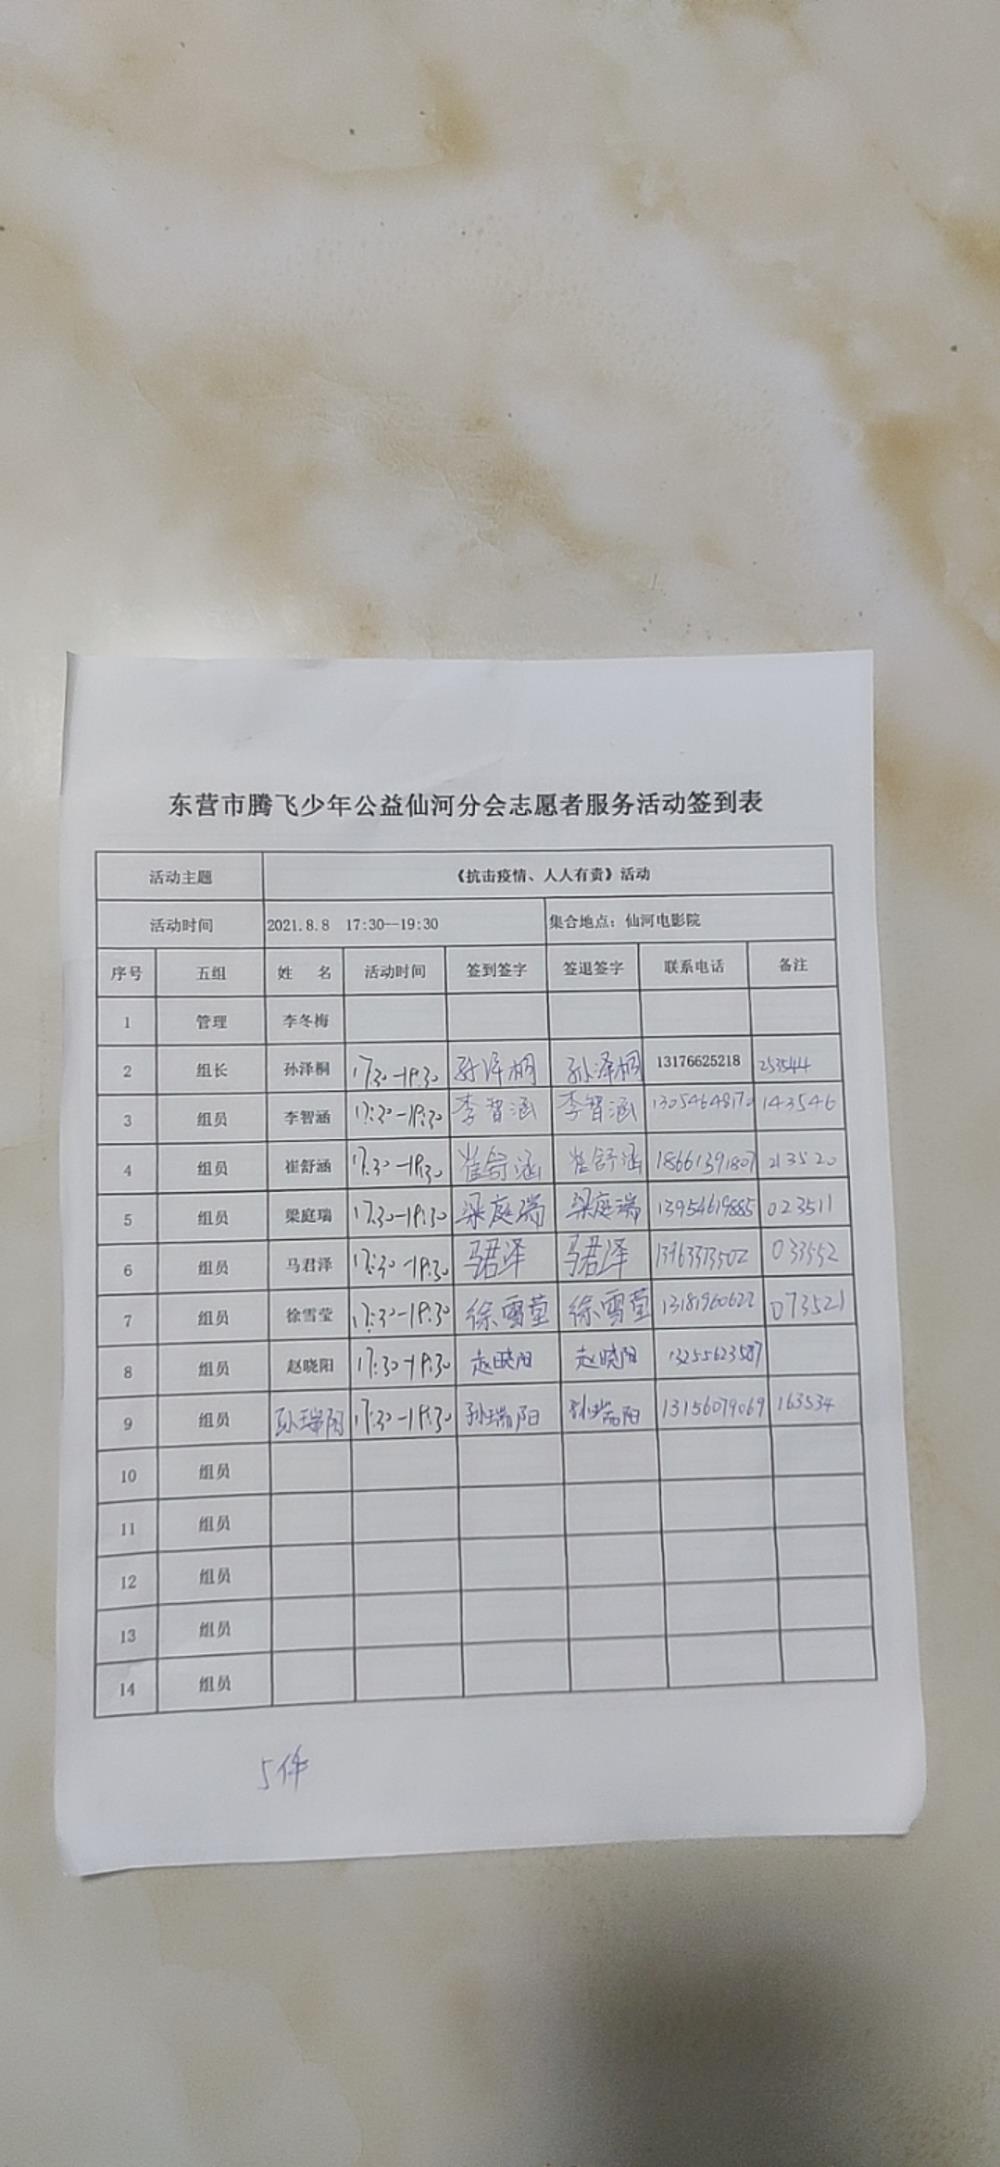 东营市腾飞少年公益仙河分会志愿者服务活动签到表
活动主题 《抗击疫情、人人有责》活动
活动时间 2021.8.8 17:30--19:30 集合地点：仙河电影院
序号 五组 姓 名 活动时间 签到签字 签退签字 联系电话 备注
1 管理 李冬梅
2 组长 孙泽桐 17:30-19:30 孙泽桐 孙泽桐 13176625218 253544
3 组员 李智涵 17:30-19:30 李智涵 李智涵 13054648170 143546
4 组员 崔舒涵 17:30-19:30 崔舒涵 崔舒涵 18661391807 213520
5 组员 梁庭瑞 17:30-19:30 梁庭瑞 梁庭瑞 13954619885 023511
6 组员 马君泽 17:30-19:30 马君泽 马君泽 033552
7 组员 徐雪莹 17:30-19:30 徐雪莹 徐雪莹 13181960622 073521
8 组员 赵晓阳 17:30-19:30 赵晓阳 赵晓阳 13255623587
9 组员 孙瑞阳 17:30-19:30 孙瑞阳 孙瑞阳 13156079069 163534
10 组员
11 组员
12 组员
13 组员
14 组员
5件